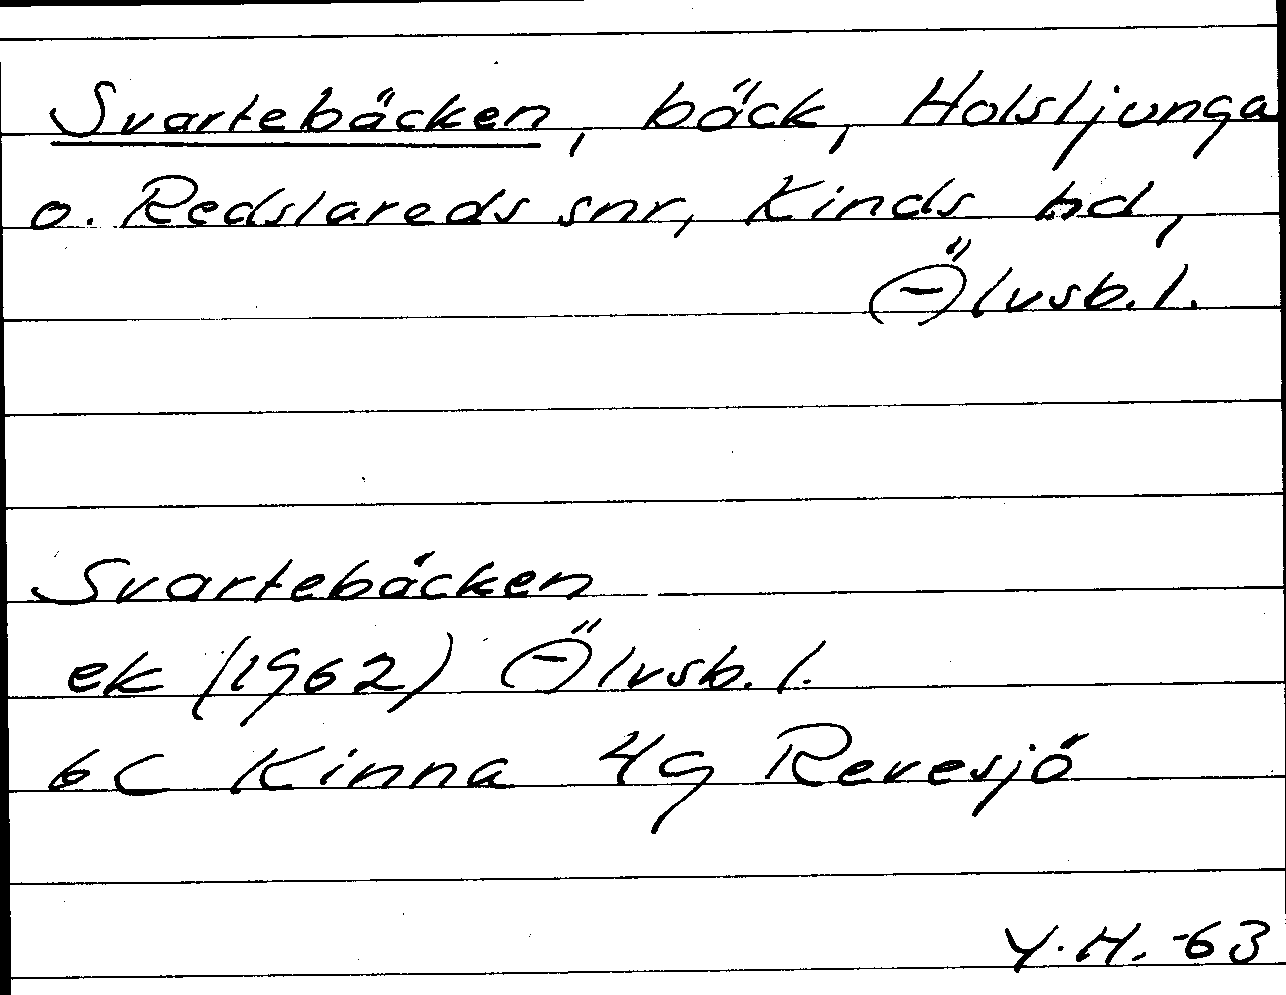 Svartebäcken, bäck, Holsljunga
o. Redslareds snr, Kinds hd,
Älvsb. l.
Svartebäcken
ek (1962) Älvsb. l.
6C Kinna 4g Revesjö
Y.H. -63